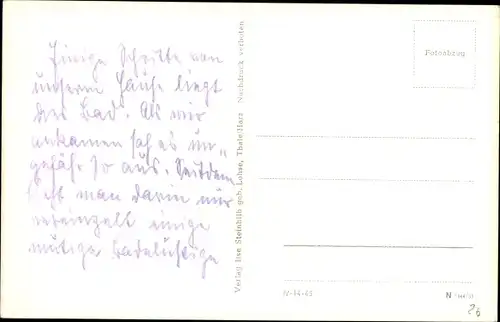 Einige Schritte von
unserm Hause liegt
das Bad. Als wir
ankamen sah es un„
gefähr so aus. Seitdem
sieht man darin nur
vereinzelt einige
mutige Badelustige
Verlag Ilse Steinbiß geb. Lohse, Thale/Harz Nachdruck verboten
Fotoabzug
IV-14-63
N
26